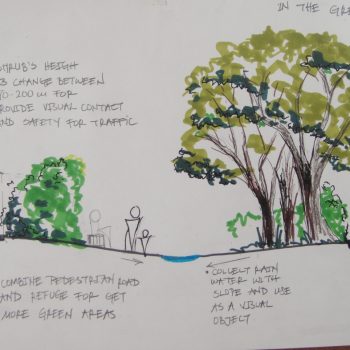 IN THE GRE
SHRUB'S HEIGH
CHANGE BETWEEN
0-200 m FOR
ROVIDE VISUAL CONTACT
AND SAFETY FOR TRAFFIC
COMBINE PEDESTRIAN ROAD
AND REFUGE FOR GET
MORE GREEN AREAS
• COLLECT RAIN
WATER WITH
SLOPE AND USE
AS A VISUAL
OBJECT